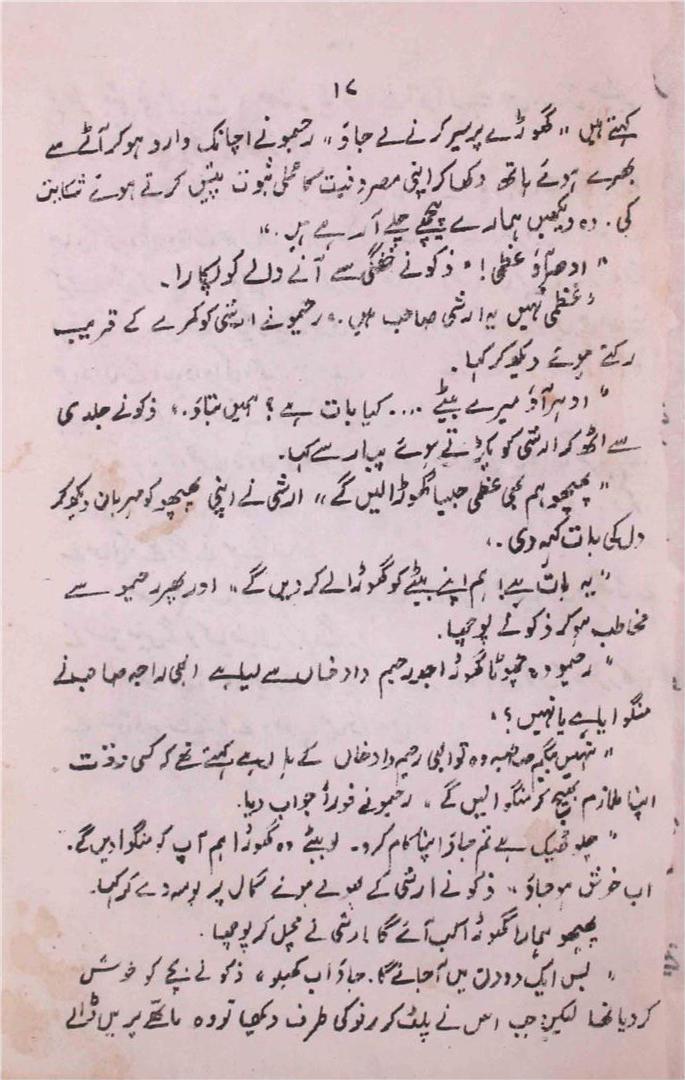 ۱۷
کہتے ہیں " گھوڑے پر سیر کرنے لے جاؤ " رحیمو نے اچانک وارد ہو کر آٹے سے
بھرے ہوئے ہاتھ دکھا کر اپنی مصروفیت کا عملی ثبوت پیش کرتے ہوئے شکایت
کی۔ وہ دیکھیں ہمارے پیچھے چلے آ رہے ہیں۔"
" ادھر آؤ عظمی! " ذکو نے خفگی سے آنے والے کو پکارا۔
" عظمی نہیں یہ ارشی صاحب ہیں۔" رحیمو نے ارشی کو کمرے کے قریب
رکتے ہوئے دیکھ کر کہا۔
" ادہر آؤ میرے بیٹے .... کیا بات ہے؟ ہمیں بتاؤ۔" ذکو نے جلدی
سے اٹھ کر ارشی کو پکڑتے ہوئے پیار سے کہا۔
" پھپھو ہم بھی عظمی جیسا گھوڑا لیں گے " ارشی نے اپنی پھپھو کو مہربان دیکھ کر
دل کی بات کہہ دی۔
" یہ بات ہے! ہم اپنے بیٹے کو گھوڑا لے کر دیں گے " اور پھر رحیمو سے
مخاطب ہو کر ذکو نے پوچھا۔
" رحیمو وہ چھوٹا گھوڑا جو رحیم داد خاں سے لیا ہے ابھی راجہ صاحب نے
منگوایا ہے یا نہیں؟"
" نہیں بیگم صاحبہ وہ تو ابھی رحیم داد خاں کے ہاں ہے کہتے تھے کہ کسی وقت
اپنا ملازم بھیج کر منگوا لیں گے " رحیمو نے فوراً جواب دیا۔
" چلو ٹھیک ہے تم جاؤ اپنا کام کرو۔ لو بیٹے وہ گھوڑا ہم آپ کو منگوا دیں گے۔
اب خوش ہو جاؤ " ذکو نے ارشی کے پھولے ہوئے گال پر بوسہ دے کر کہا۔
پھپھو ہمارا گھوڑا کب آئے گا ارشی نے مچل کر پوچھا۔
" بس ایک دو دن میں آ جائے گا۔ جاؤ اب کھیلو " ذکو نے بچے کو خوش
کر دیا تھا لیکن جب اس نے پلٹ کر رنو کی طرف دیکھا تو وہ ماتھے پر بل ڈالے